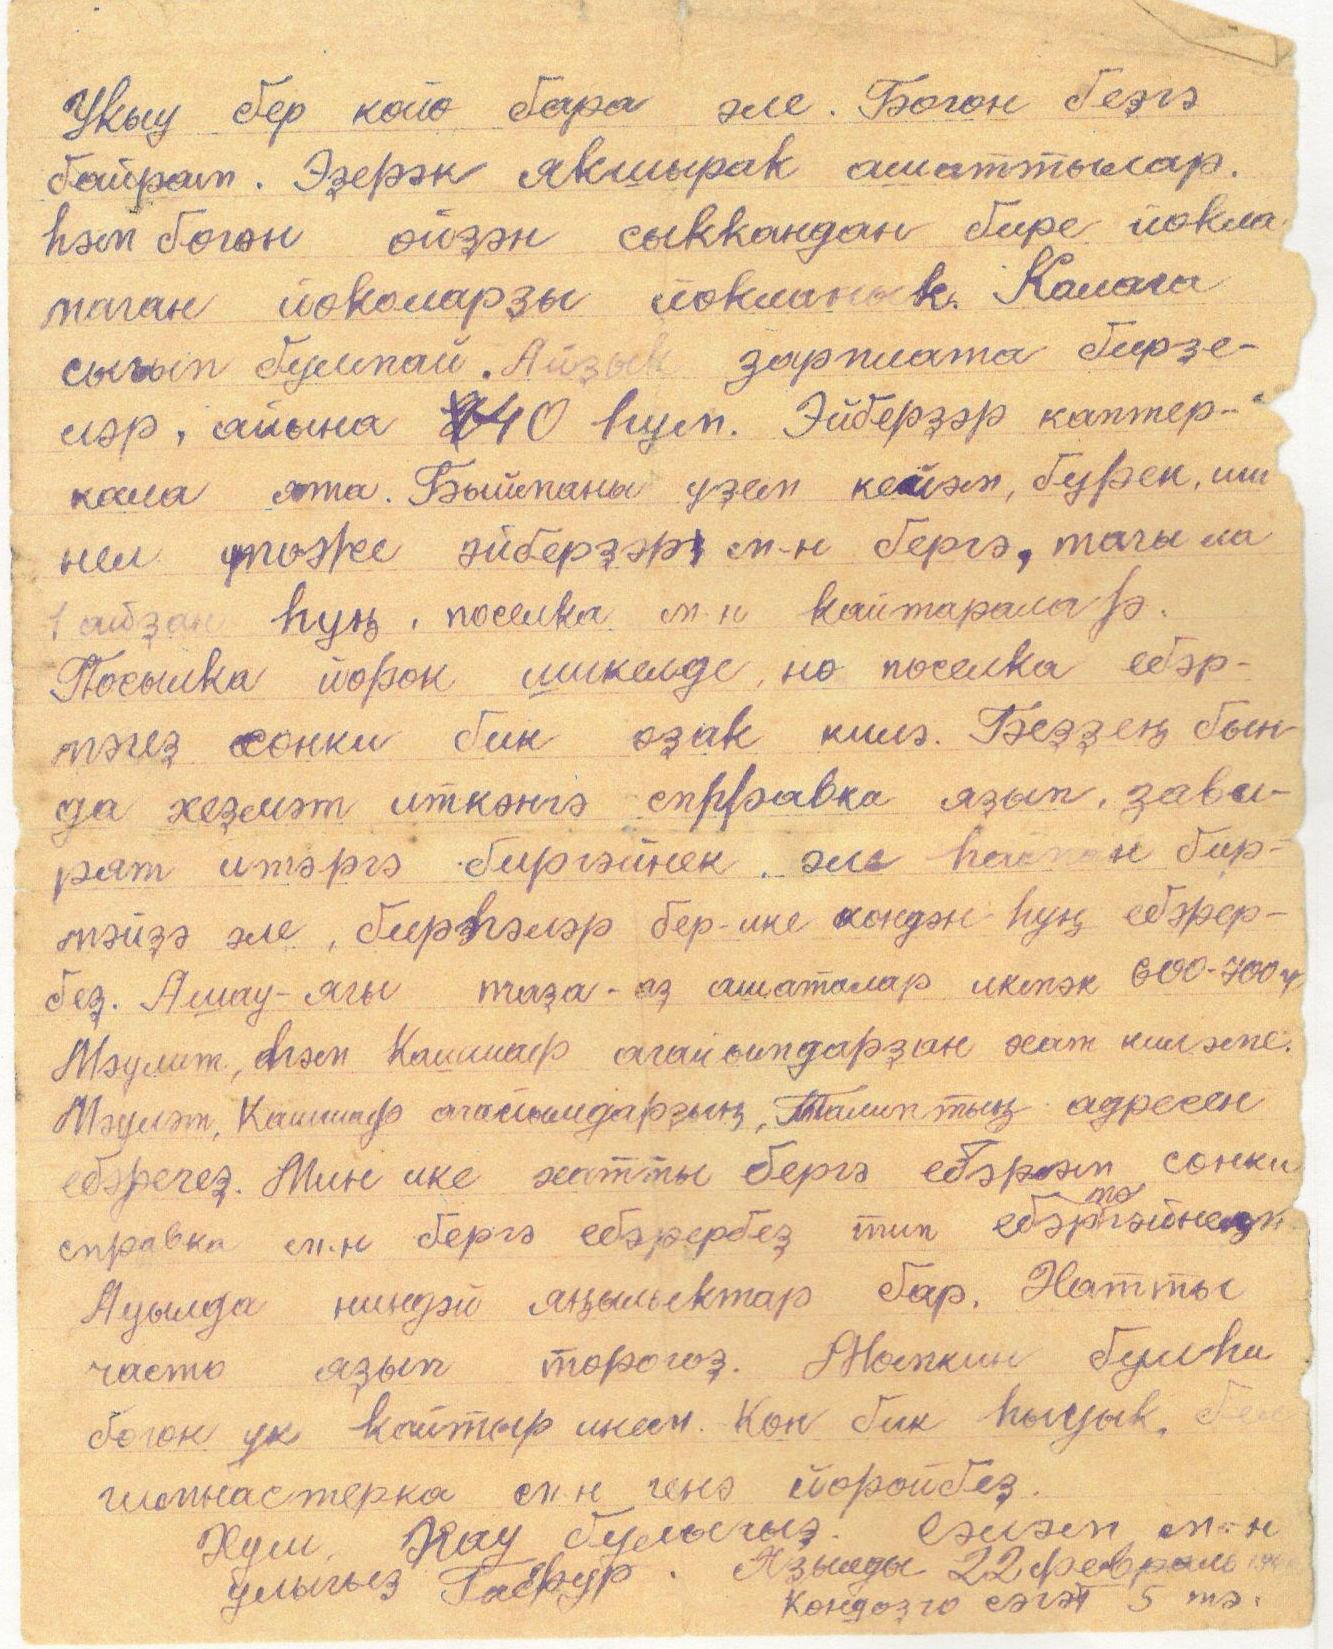 Укыу бер койо бара эле. Бөгөн беҙгә
байрам. Әҙерәк якшырак ашаттылар.
Һәм бөгөн өйҙән сыккандан бире йокла
маган йоколарҙы йокланык. Калага
сыгып булмай. Айҙык зарплата бирҙе-
ләр, айына 40 һум. Әйберҙәр каптер-
кала ята. Быйманы үҙем кейәм, бүрек, ши
нел тоже әйберҙәр м-н бергә, тагы ла
1 айҙан һуң, поселка м-н кайтарала
Посылка йөрөк шикелде, но поселка ебәр-
мәгеҙ сөнки бик оҙак килә. Беҙҙең бын-
да хеҙмәт иткәнгә справка яҙып, зави-
рят итәргә биргәйнек, әле һаман бир-
мәйҙә әле, бирһәләр бер-ике көндән һуң ебәрер-
беҙ. Ашау-ягы таҙа-аҙ ашаталар икмәк 600-700 гр
Мәүлит, һәм Кашшаф агайымдарҙан хат киләме.
Мәүләт, Кашшаф агайымдарҙың, Талиптың адресен
ебәрегеҙ. Мин ике хатты бергә ебәрәм сөнки
справка м.н бергә ебәрербеҙ тип ебәрмәгәйнек
Ауылда ниндәй яңылыктар бар. Хатты
часто яҙып торогоҙ. Мөмкин булһа
бөгөн үк кайтыр инем. Көн бик һыуык,
гимнастерка м.н генә йөрөйбеҙ.
Хуш, Һау булыгыҙ. Сәләм м-н
улыгыҙ Гафур. Яҙылды 22 февраль
Көндөҙгө сәгәт 5 тә.